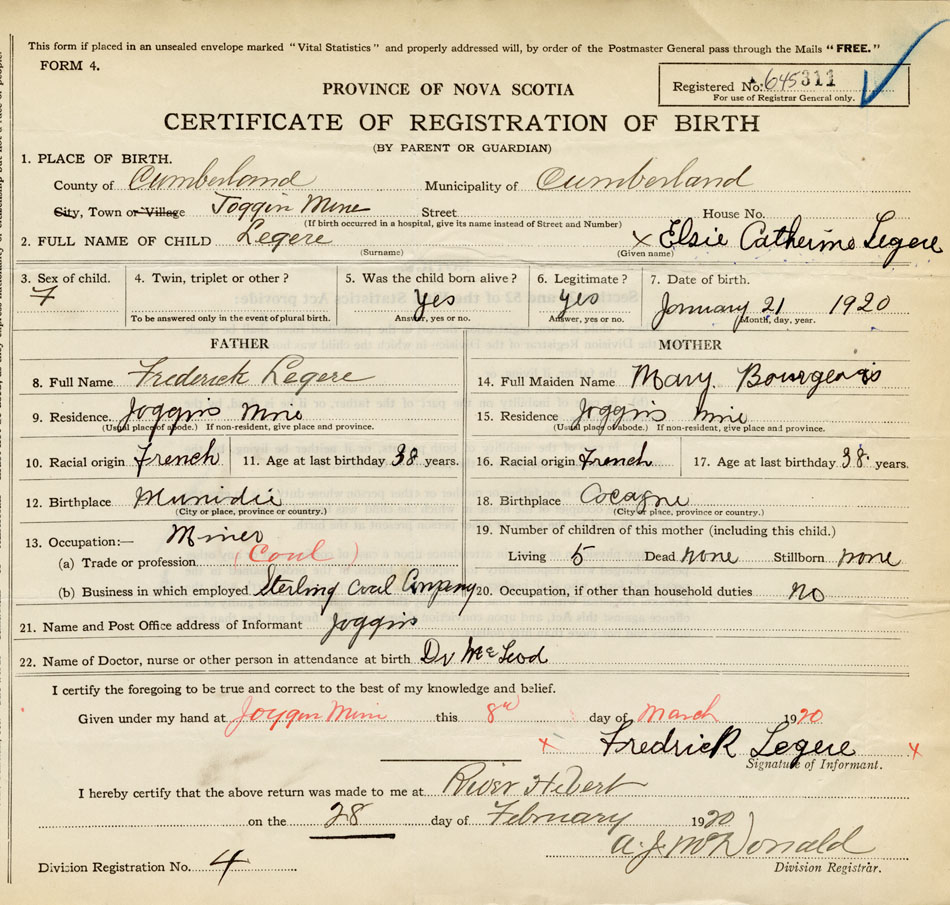 This form if placed in an unsealed envelope marked "Vital Statistics" and properly addressed will, by order of the Postmaster General pass through the Mails "FREE."
FORM 4.
Registered No. 645311
For use of Registrar General only.
PROVINCE OF NOVA SCOTIA
CERTIFICATE OF REGISTRATION OF BIRTH
(BY PARENT OR GUARDIAN)
1. PLACE OF BIRTH.
County of Cumberland Municipality of Cumberland
City, Town or Village Joggin Mine Street House No.
(If birth occurred in a hospital, give its name instead of Street and Number)
2. FULL NAME OF CHILD Legere x Elsie Catherine Legere
(Surname) (Given name)
3. Sex of child. 4. Twin, triplet or other? 5. Was the child born alive? 6. Legitimate? 7. Date of birth.
F yes yes January 21 1920
To be answered only in the event of plural birth. Answer, yes or no. Answer, yes or no. Month, day, year.
FATHER MOTHER
8. Full Name Frederick Legere 14. Full Maiden Name Mary Bourgeois
9. Residence. Joggins Mine 15. Residence Joggins Mine
(Usual place of abode.) If non-resident, give place and province. (Usual place of abode.) If non-resident, give place and province.
10. Racial origin French 11. Age at last birthday 38 years. 16. Racial origin French 17. Age at last birthday 38 years.
12. Birthplace 18. Birthplace Cocagne
(City or place, province or country.) (City or place, province or country.)
13. Occupation:— Miner 19. Number of children of this mother (including this child.)
(a) Trade or profession (Coal) Living 5 Dead none Stillborn none
(b) Business in which employed Sterling Coal Company 20. Occupation, if other than household duties no
21. Name and Post Office address of Informant Joggins
22. Name of Doctor, nurse or other person in attendance at birth Dr McLeod
I certify the foregoing to be true and correct to the best of my knowledge and belief.
Given under my hand at Joggin Mine this 8 day of March 1920
x Fredrick Legere x
Signature of Informant.
I hereby certify that the above return was made to me at River Hebert
on the 28 day of February 1920
A. J. McDonald
Division Registration No. 4 Division Registrar.